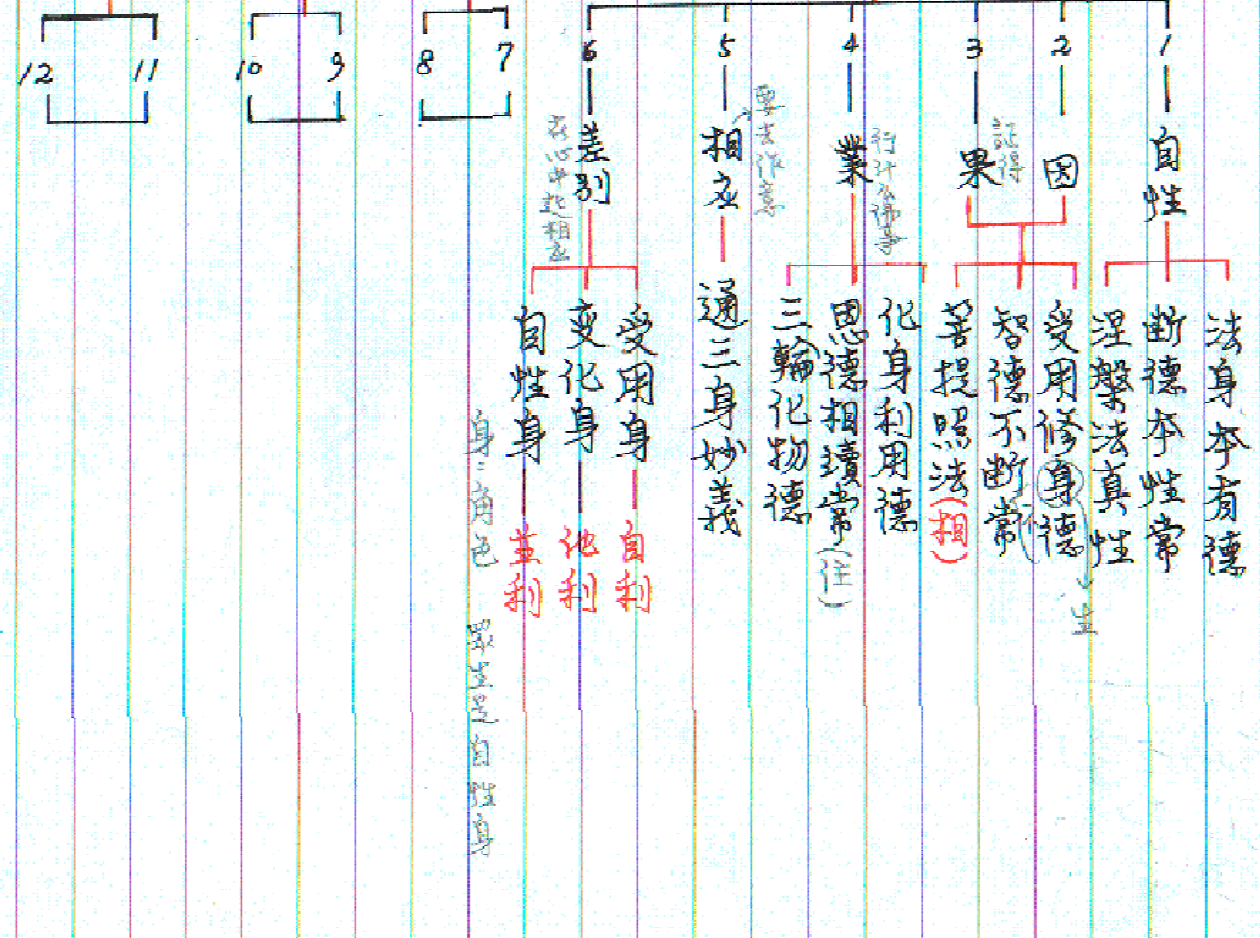 1
自性
法身本有德
断德本性常
涅槃法真性
2
因
3
果
証得
受用修身德
生
智德不断常
菩提照法(相)
4
業
化身利用德
恩德相續常(住)
三輪化物德
5
相应
要去作意
通三身妙義
6
差別
在心中起相应
受用身
自利
变化身
他利
自性身
並利
身:角色 眾生是自性身
7
8
9
10
11
12